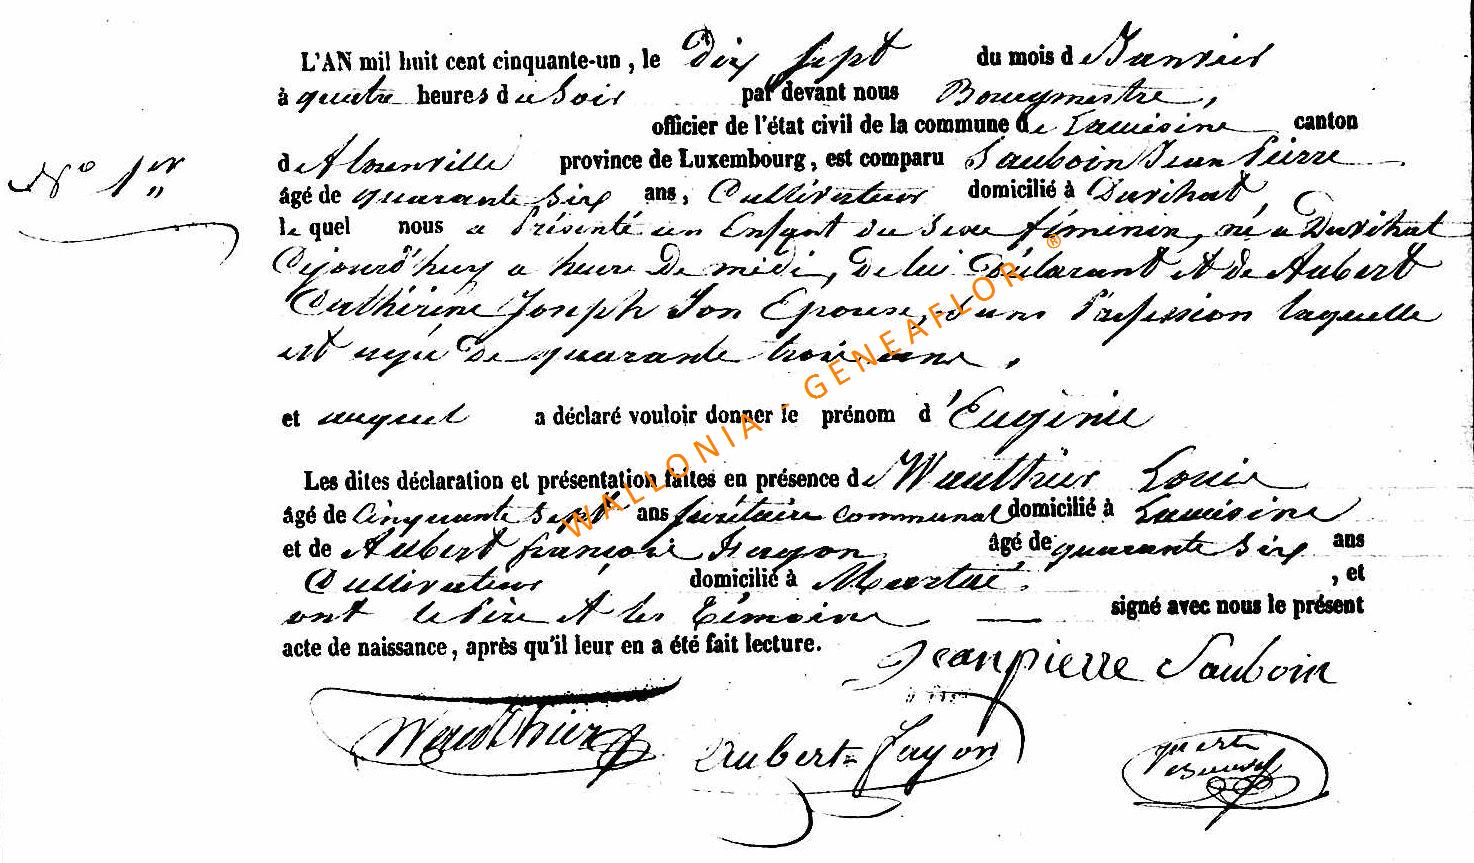 L'AN mil huit cent cinquante-un, le Dix Sept du mois de Janvier
à quatre heures du Soir par devant nous Bourgmestre,
officier de l'état civil de la commune de Lavaisine canton
d
province de Luxembourg, est comparu Sauboin Jean Pierre
N° 1er
âgé de quarante Six ans, Cultivateur domicilié à
le quel nous a Présenté un Enfant du Sexe féminin, né a
Cejourd'huy a heure De midi, de lui Déclarant et de Aubert
Cathérine Joseph Son Epouse, sans Profession laquelle
est agée De quarante trois ans,
et auquel a déclaré vouloir donner le prénom d'Eugénie
Les dites déclaration et présentation faites en présence de Wauthier Louis
âgé de Cinquante Sept ans Secrétaire Communal domicilié à
et de Aubert françois Fayon âgé de quarante Six ans
Cultivateur domicilié à , et
ont le Père et les Témoins signé avec nous le présent
acte de naissance, après qu'il leur en a été fait lecture.
Jeanpierre Sauboin
Wauthier
Aubert=Fayon
WALLONIA - GENEAFLOR ®